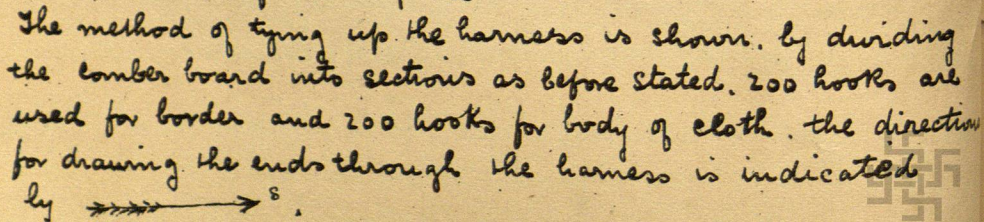 The method of tying up the harness is shown, by dividing
the comber board into sections as before stated. 200 hooks are
used for border and 200 hooks for body of cloth. the direction
for drawing the ends through the harness is indicated
by s.